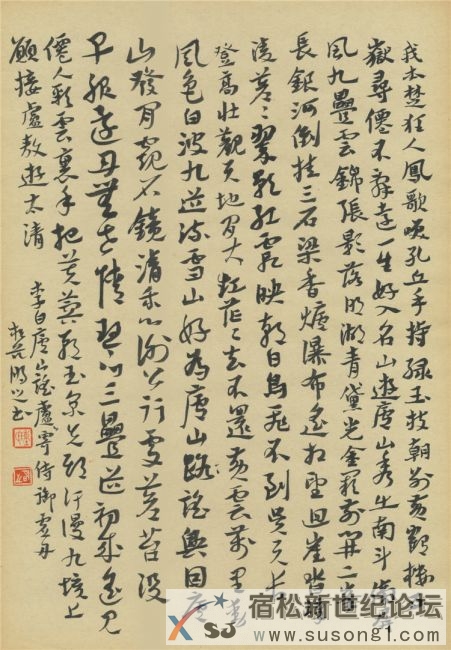 我本楚狂人鳳歌笑孔丘手持綠玉杖朝別黃鶴樓五
嶽尋僊不辭遠一生好入名山遊廬山秀出南斗傍屏
風九疊雲錦張影落明湖青黛光金闕前開二峯
長銀河倒挂三石梁香爐瀑布遙相望迴崖沓嶂
凌蒼〻翠影紅霞映朝日鳥飛不到吳天長
登高壯觀天地間大江茫〻去不還黃雲萬里動
風色白波九道流雪山好為廬山謠興因廬
山發閒窺石鏡清我心謝公行處蒼苔沒
早服還丹無世情琴心三疊道初成遙見
僊人彩雲裏手把芙蓉朝玉京先期汗漫九垓上
願接盧敖遊太清
李白廬山謠盧寄侍御虛舟
宿松新世纪论坛
SJ
www.susong1.com